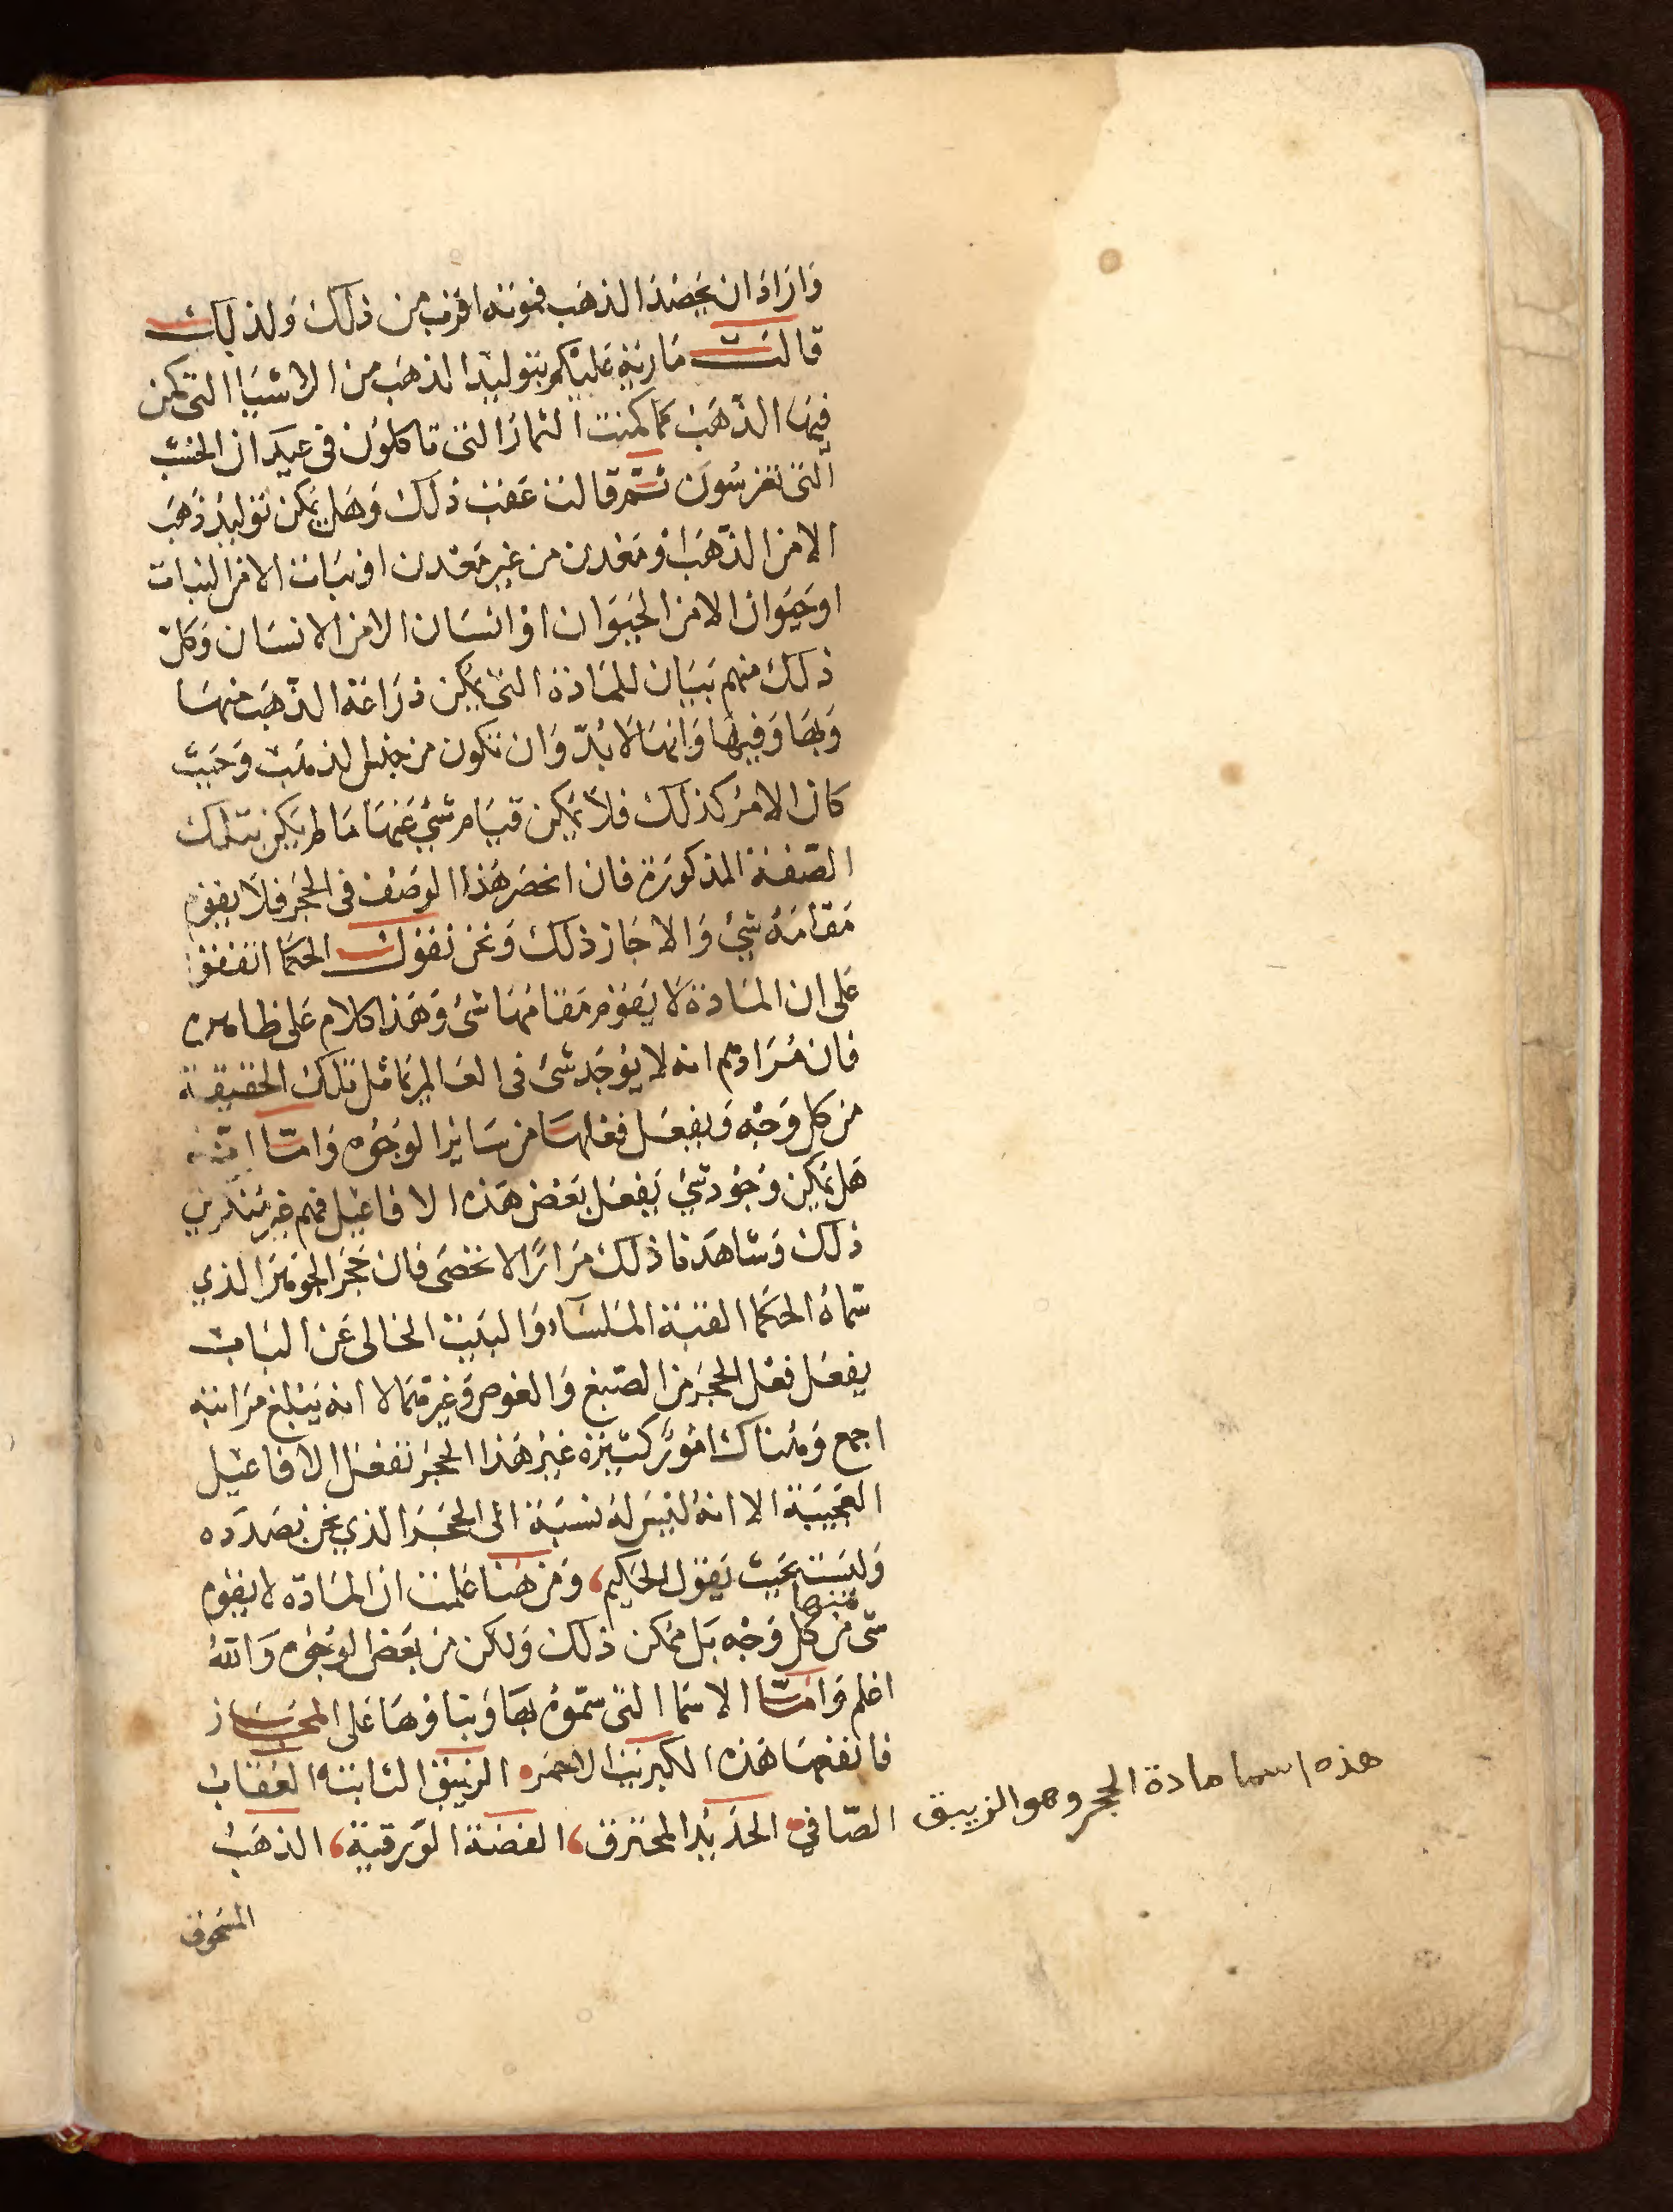 وَارَادَ ان يَحصُدَ الذهَب فمؤنته اقرب من ذلك وَلذلك
قالت مَارية عَليكم بتوليد الذهَب من الاشيَا التى كمن
فيهَا الذهَب كما كمنت الثمار التى تاكلون فى عيدَان الخشب
التى تغرسُون ثم قالت عَقب ذلك وَهَل يمكن توليد ذهَب
الا من الذهَب او مَعدن من غير مَعدن او نبَات الا من النبات
او حَيوَان الا من الحيَوَان او انسَان الا من الانسَان وَكل
ذلك منهم بَيَان للمَادة التى يمكن زرَاعَة الذهَب منهَا
وَبهَا وَفيهَا وَانهَا لا بُدّ وَان تكون من جنس الذهَب وَحَيث
كان الامر كذلك فلا يمكن قيَام شىٔ عَنهَا مَا لم يَكن بتلك
الصّفة المذكورَة فان انحصَر هَذا الوَصف فى الحجَر فلا يقوم
مَقامَهُ شىٔ وَالا جَاز ذلك وَنحن نقول الحكمَا اتفقوا
عَلى ان المَادة لا يَقوم مَقامهَا شىٔ وَهَذا كلام عَلى ظاهره
فان مُرَادهم انه لا يوجَد شىٔ فى العَالم يمَاثل تلك الحقيقة
من كل وَجه وَيفعَل فعلهَا من سَائر الوجُوه وَامّا انه
هَل يمكن وجُود شىٔ يَفعَل بَعض هَذه الافاعيل فهم غير منكرين
ذلك وَشاهَدنا ذلك مرَارًا لا تحصَى فان حَجَر الجَوهَر الذي
سَمّاهُ الحكمَا القبة الملسَاء وَالبَيت الخالى عَن البَاب
يفعَل فعْل الحجَر من الصّبغ وَالغوص وَغيرهمَا لا انه يَبلغ مَرَاتبه
اجمع وَهنَاك امُورٌ كثيرَة غير هَذا الحجَر تفعَل الافاعيل
العَجيبَة الا انهُ ليسَ لهُ نسبَة الى الحجَر الذي نحن بصَدَده
وَليسَت بحَيث يَقول الحكيم، وَمن هنا عَلمت ان المَادّة لا يقوم
شى من كل وَجْه بَل ممكن ذلك وَلكن من بَعض الوجُوه وَاللهُ
اعلم وَامّا الاسمَا التى سَمّوهُ بهَا وَبنا وهَا عَلى المجَاز
فانفعهَا هَذه الكبريت الاحمَر، الزيبق الثابتة، العقاب
الصّافي، الحَديد المحترق، الفضة الوَرقية، الذهَبُ
المسَحُوق
هذه اسما مادة الحجر وهو الزيبق